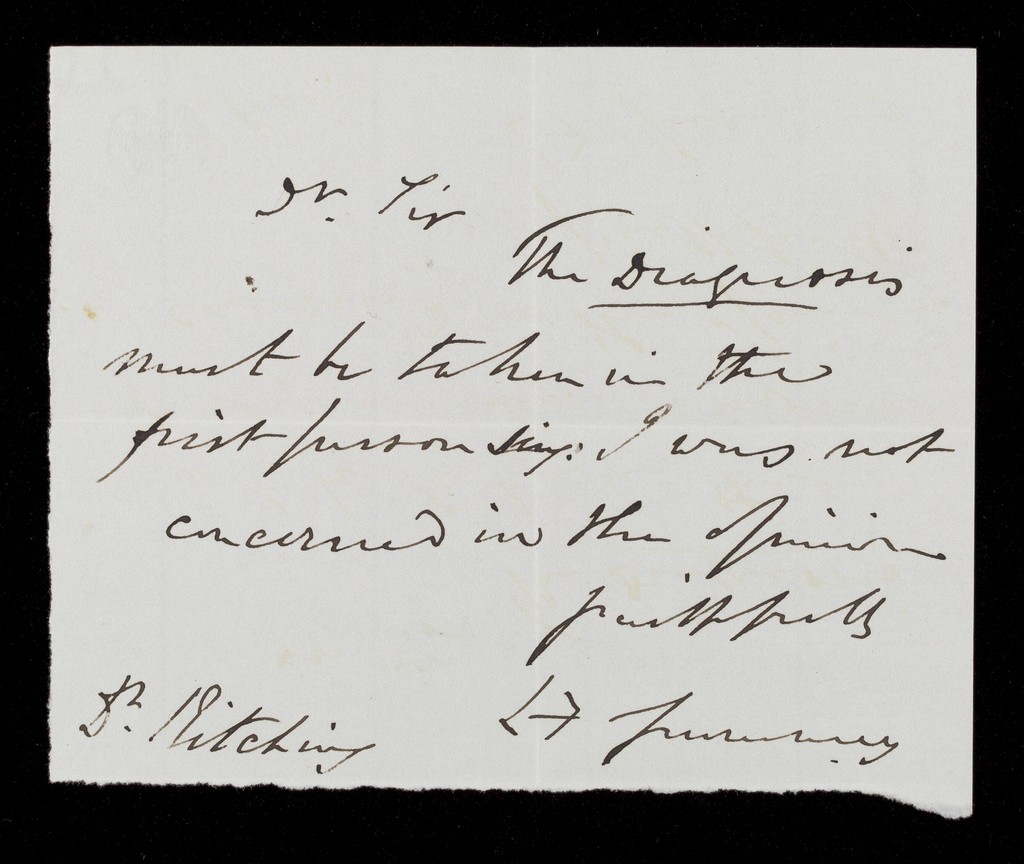 Dr. Sir
The Diagnosis
must be taken in the
first person sing: I was not
concerned in the opinion
faithfully
Dr. Kitching